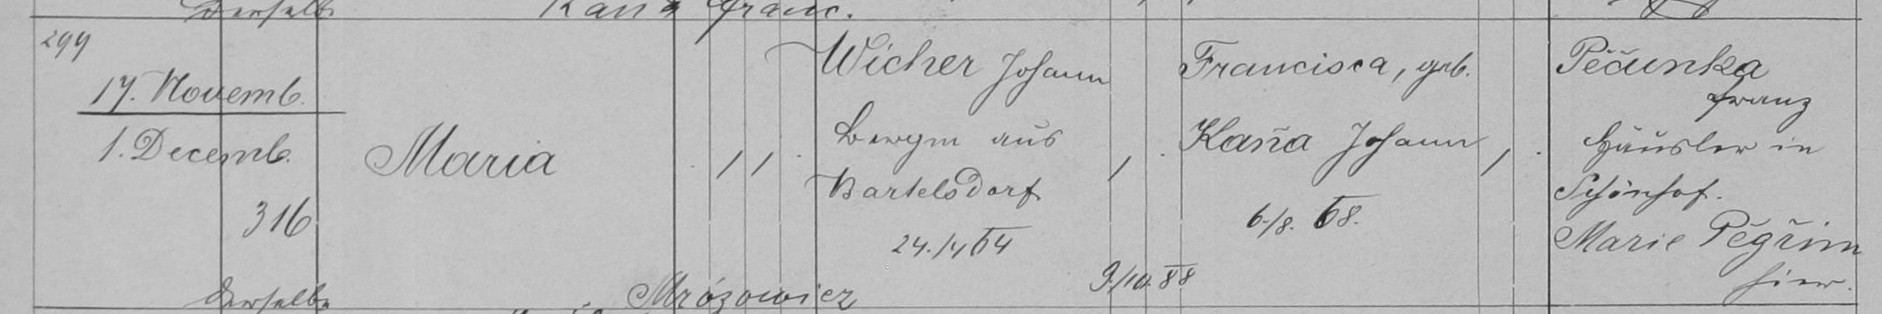 derselbe Kaňa Franc.
299
17. Novemb.
1. Decemb.
316
Maria
Wicher Johann
Bergm aus
Bartelsdorf
24./4 64
Francisca, geb.
Kaňa Johann
6./8. 68.
9./10. 88
Pečunka
Franz
Häusler in
Schönhof.
Marie Pěgřim
hier.
derselbe Mrózowicz